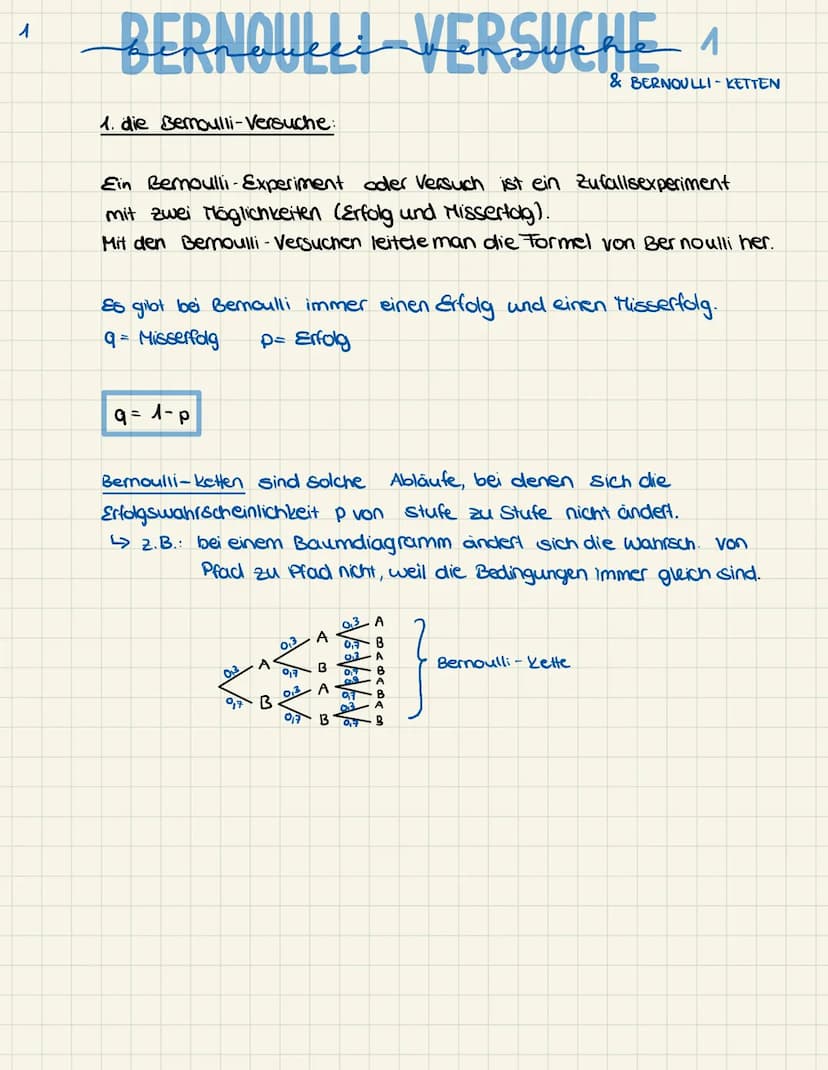 1
BERNOULLI-VERSUCHE 1
bernoulli-versuche
& BERNOULLI-KETTEN
1. die Bernoulli-Versuche:
Ein Bernoulli-Experiment oder Versuch ist ein Zufallsexperiment
mit zwei Möglichkeiten (Erfolg und Misserfolg).
Mit den Bernoulli-Versuchen leitete man die Formel von Bernoulli her.
Es gibt bei Bernoulli immer einen Erfolg und einen Misserfolg.
q = Misserfolg p = Erfolg
q = 1-p
Bernoulli-Ketten sind solche Abläufe, bei denen sich die
Erfolgswahrscheinlichkeit p von Stufe zu Stufe nicht ändert.
↳ z.B.: bei einem Baumdiagramm ändert sich die Wahrsch. von
Pfad zu Pfad nicht, weil die Bedingungen immer gleich sind.
0,3 A
0,3 A 0,7 B
0,3 A
0,3 A 0,7 B 0,7 B
A
0,7 B 0,3 A 0,7 B
0,3 A
0,7 B 0,7 B
Bernoulli-Kette